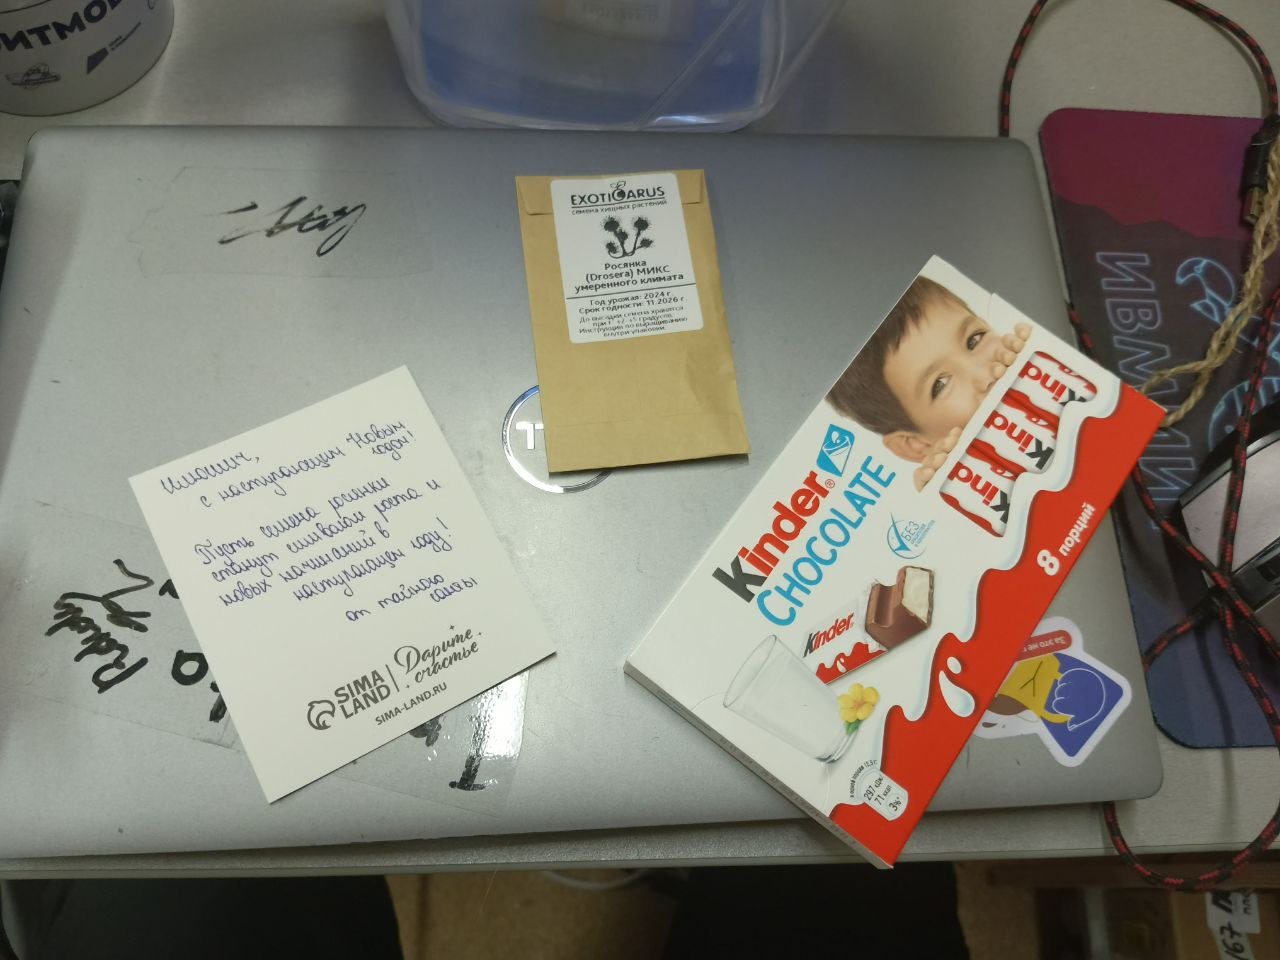 ИТМО
EXOTICARUS
семена хищных растений
Росянка
(Drosera) МИКС
умеренного климата
Год урожая: 2024 г.
Срок годности: 11.2026 г.
До высадки семена хранятся
при t° +/-5 градусов.
Инструкция по выращиванию
внутри упаковки.
с наступающим Новым
годом!
Пусть семена росянки
станут символом роста и
новых начинаний в
наступающем году!
от тайного
санты
SIMA
LAND
Дарите
счастье
SIMA-LAND.RU
Kinder®
CHOCOLATE
БЕЗ
Kinder
8 порций
297 кДж
71 ккал
3%*
Kind
Kind
Kind
За это не
167